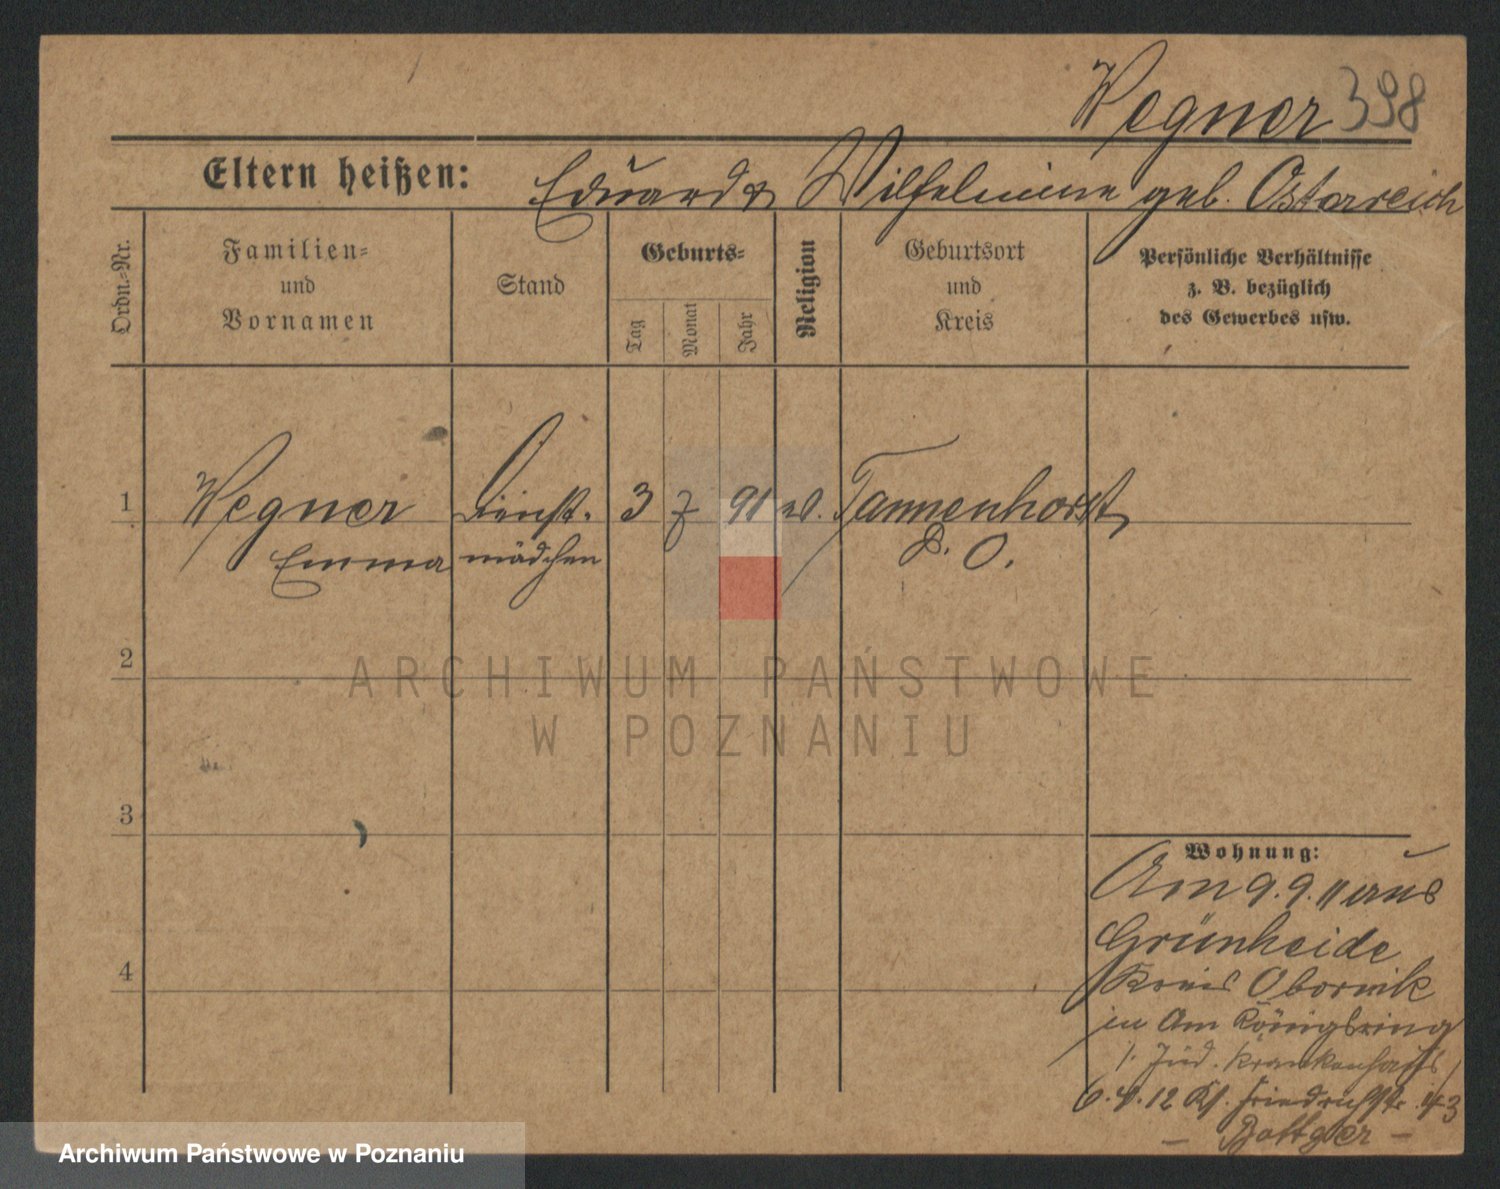 Wegner 398
Eltern heißen: Eduard & Wilhelmine geb. Osterreich
Ordn.-Nr.
Familien-
und
Vornamen
Stand
Geburts-
Tag
Monat
Jahr
Religion
Geburtsort
und
Kreis
Persönliche Verhältnisse
z. B. bezüglich
des Gewerbes usw.
1 Wegner Dienst- 3 7 91 ev. Tannenhorst
Emma mädchen P. O.
2
3
4
ARCHIWUM PAŃSTWOWE
W POZNANIU
Wohnung:
Am 9.9.11 aus
Grünheide
Kreis Obornik
in Am Königsring
/. Jüd. Krankenhaus /
12 Friedrichstr.
Archiwum Państwowe w Poznaniu